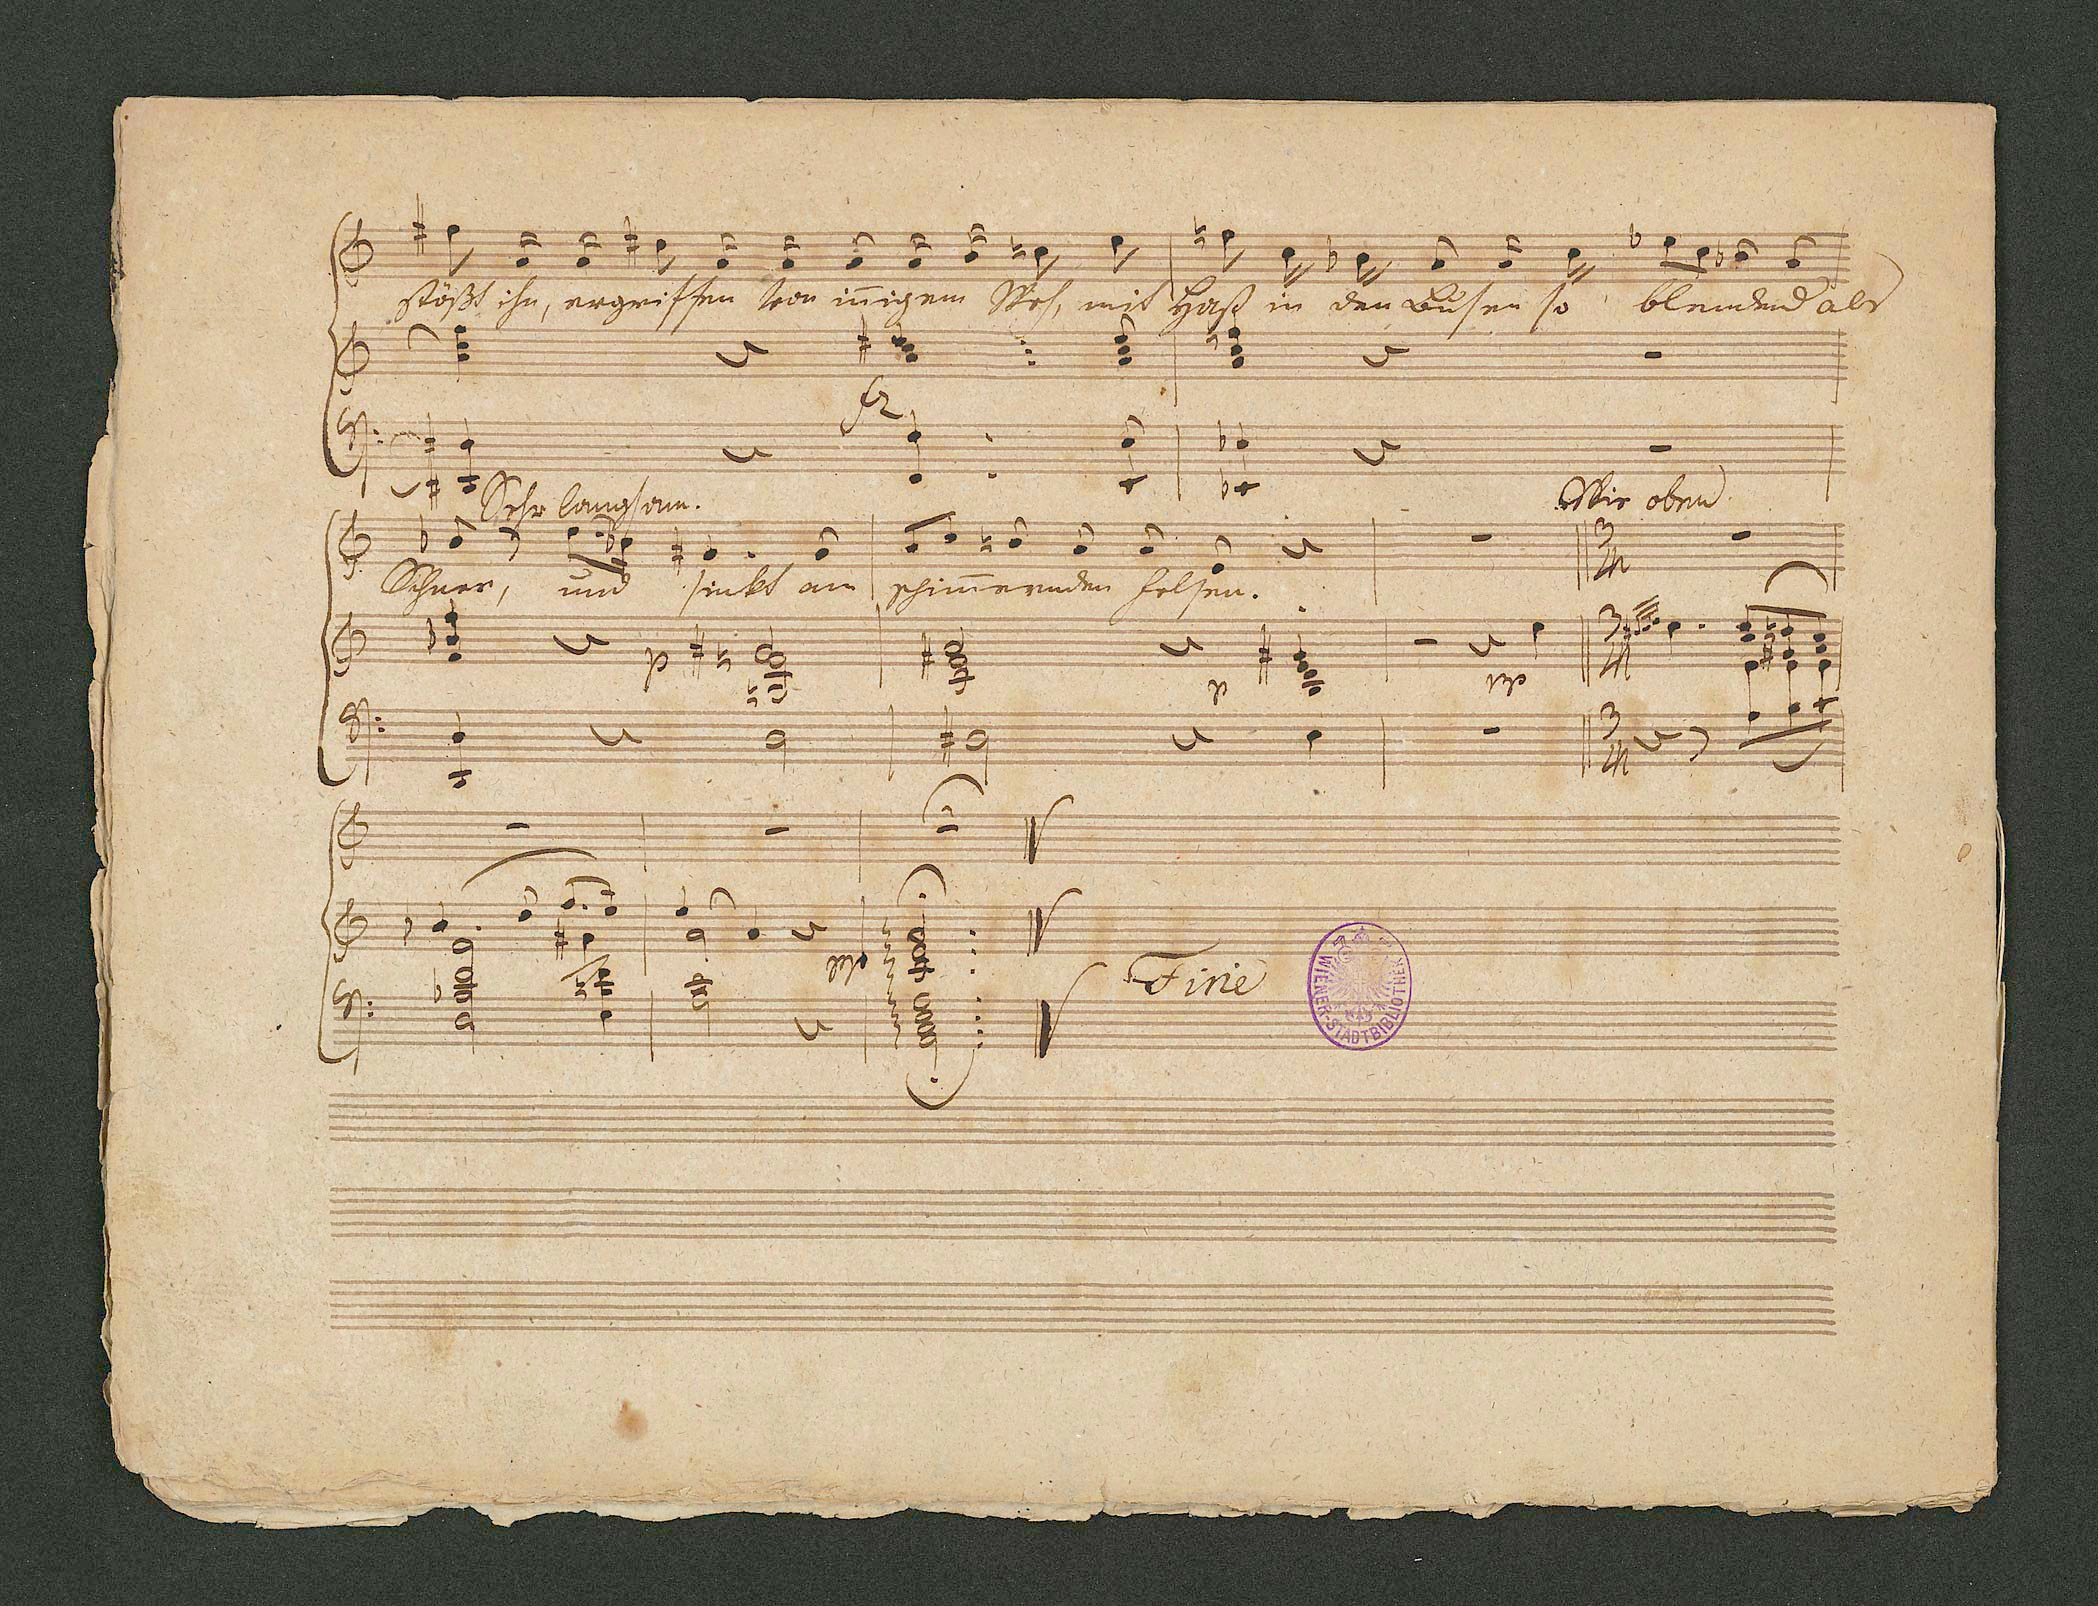 stößt ihn, ergriffen von iñigem Weh, mit Haß in den Busen so blendend als
fz
Sehr langsam.
Wie oben
Schnee, und sinkt am schim̄ernden Felsen.
p
p
pp
3
4
Fine
WIENER-STADTBIBLIOTHEK